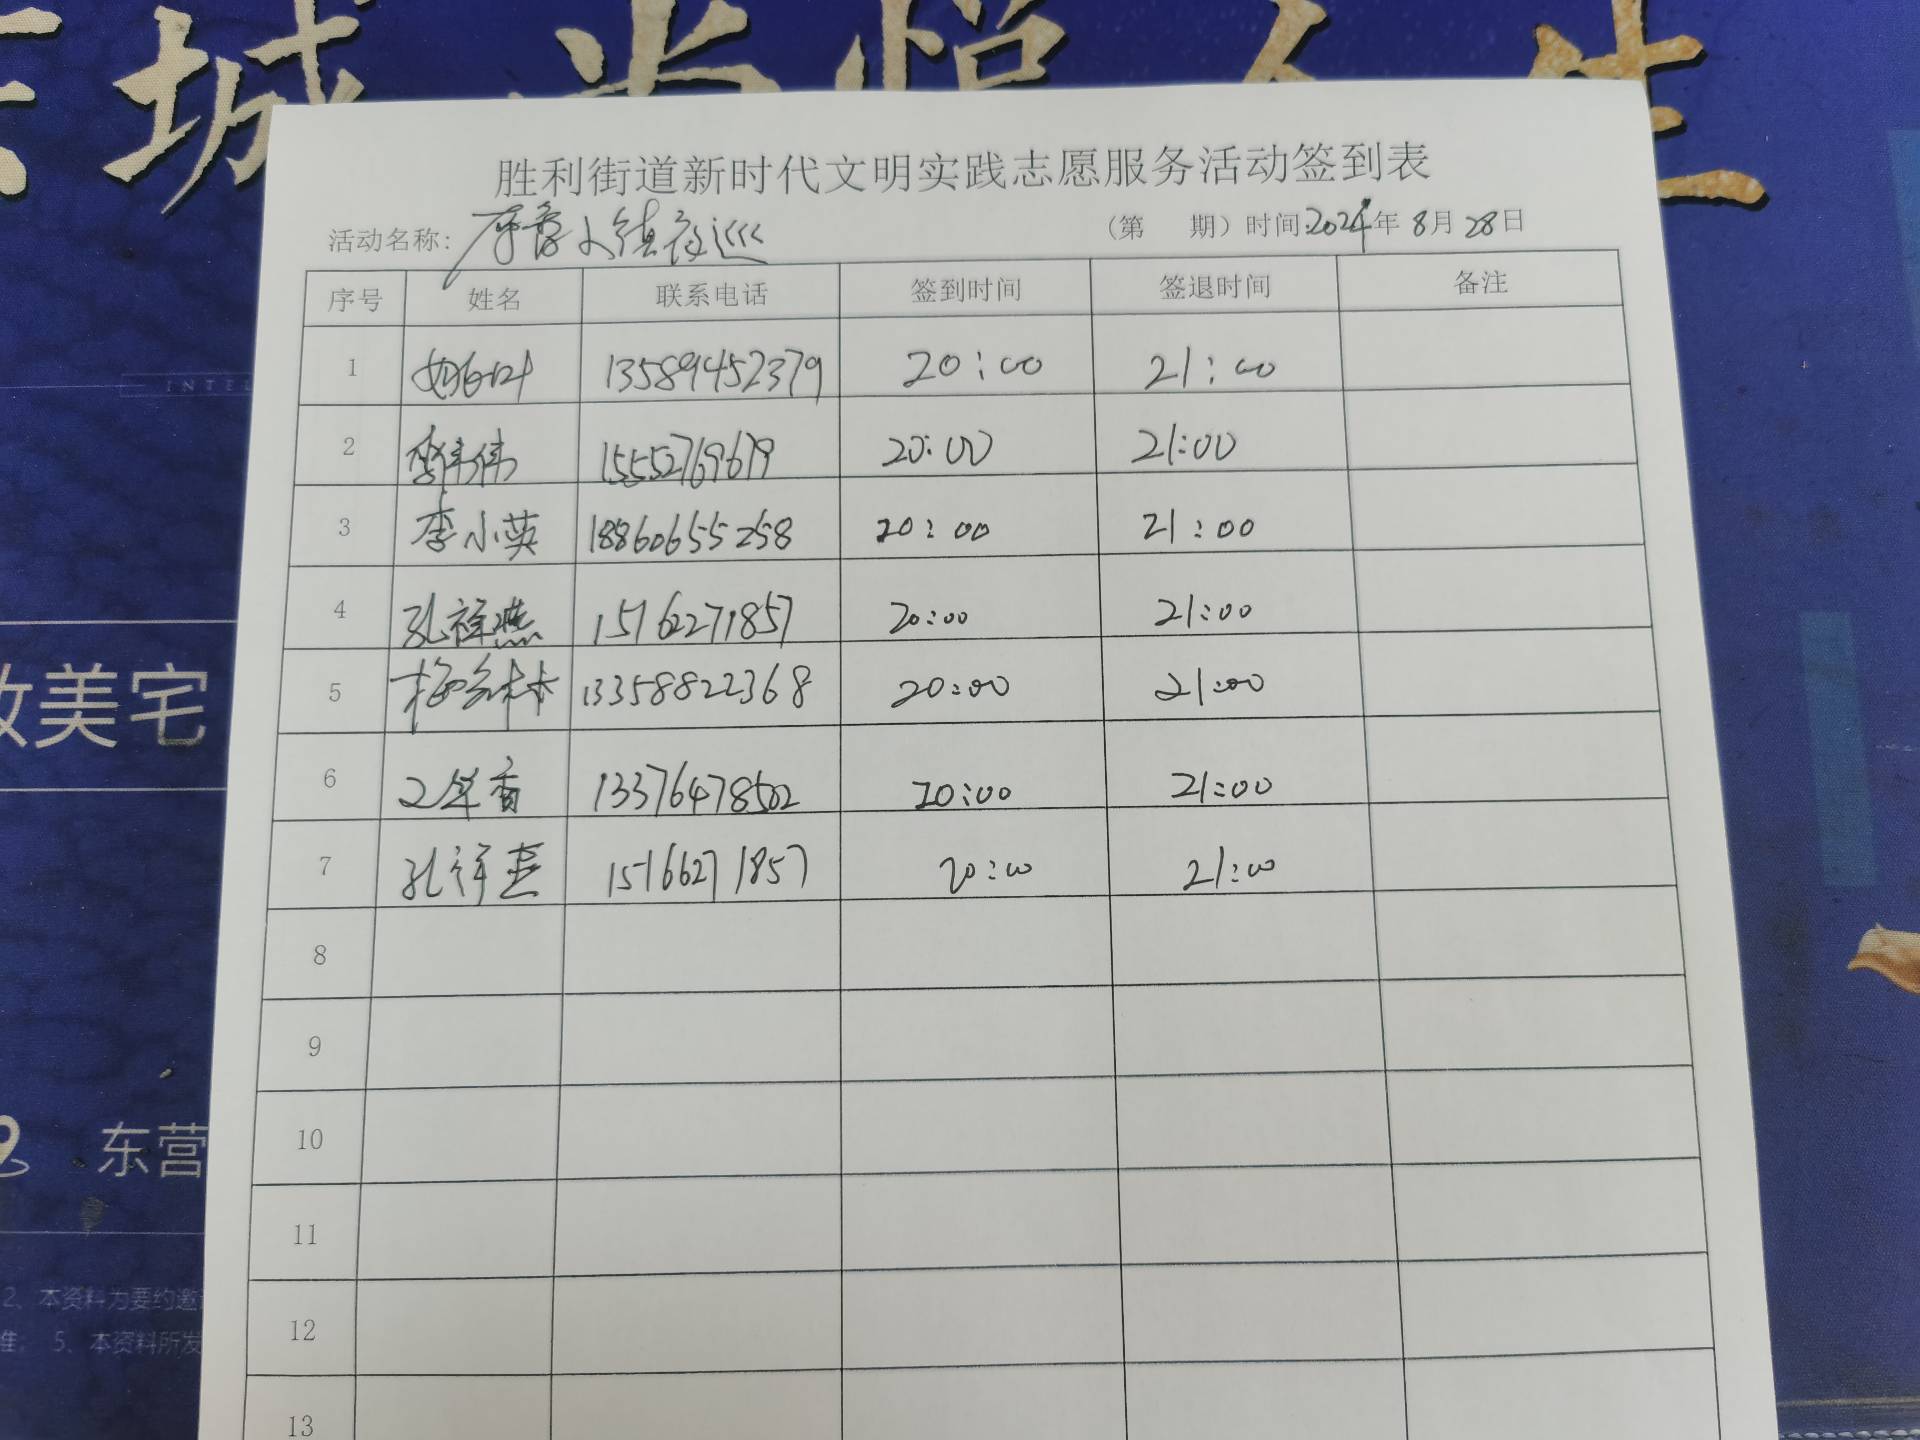 城 尚悦人生
胜利街道新时代文明实践志愿服务活动签到表
活动名称: 小镇夜巡 (第 期) 时间:2024年 8月 28日
序号 姓名 联系电话 签到时间 签退时间 备注
1 13589452379 20:00 21:00
2 伟 15552769679 20:00 21:00
3 李小英 18860655258 20:00 21:00
4 孔祥燕 15162271857 20:00 21:00
5 13358822368 20:00 21:00
6 香 13376478502 20:00 21:00
7 孔祥 15166271857 20:00 21:00
8
9
10
11
12
13
INTEL
美宅
东营
2、本资料为要约邀
准; 5、本资料所发